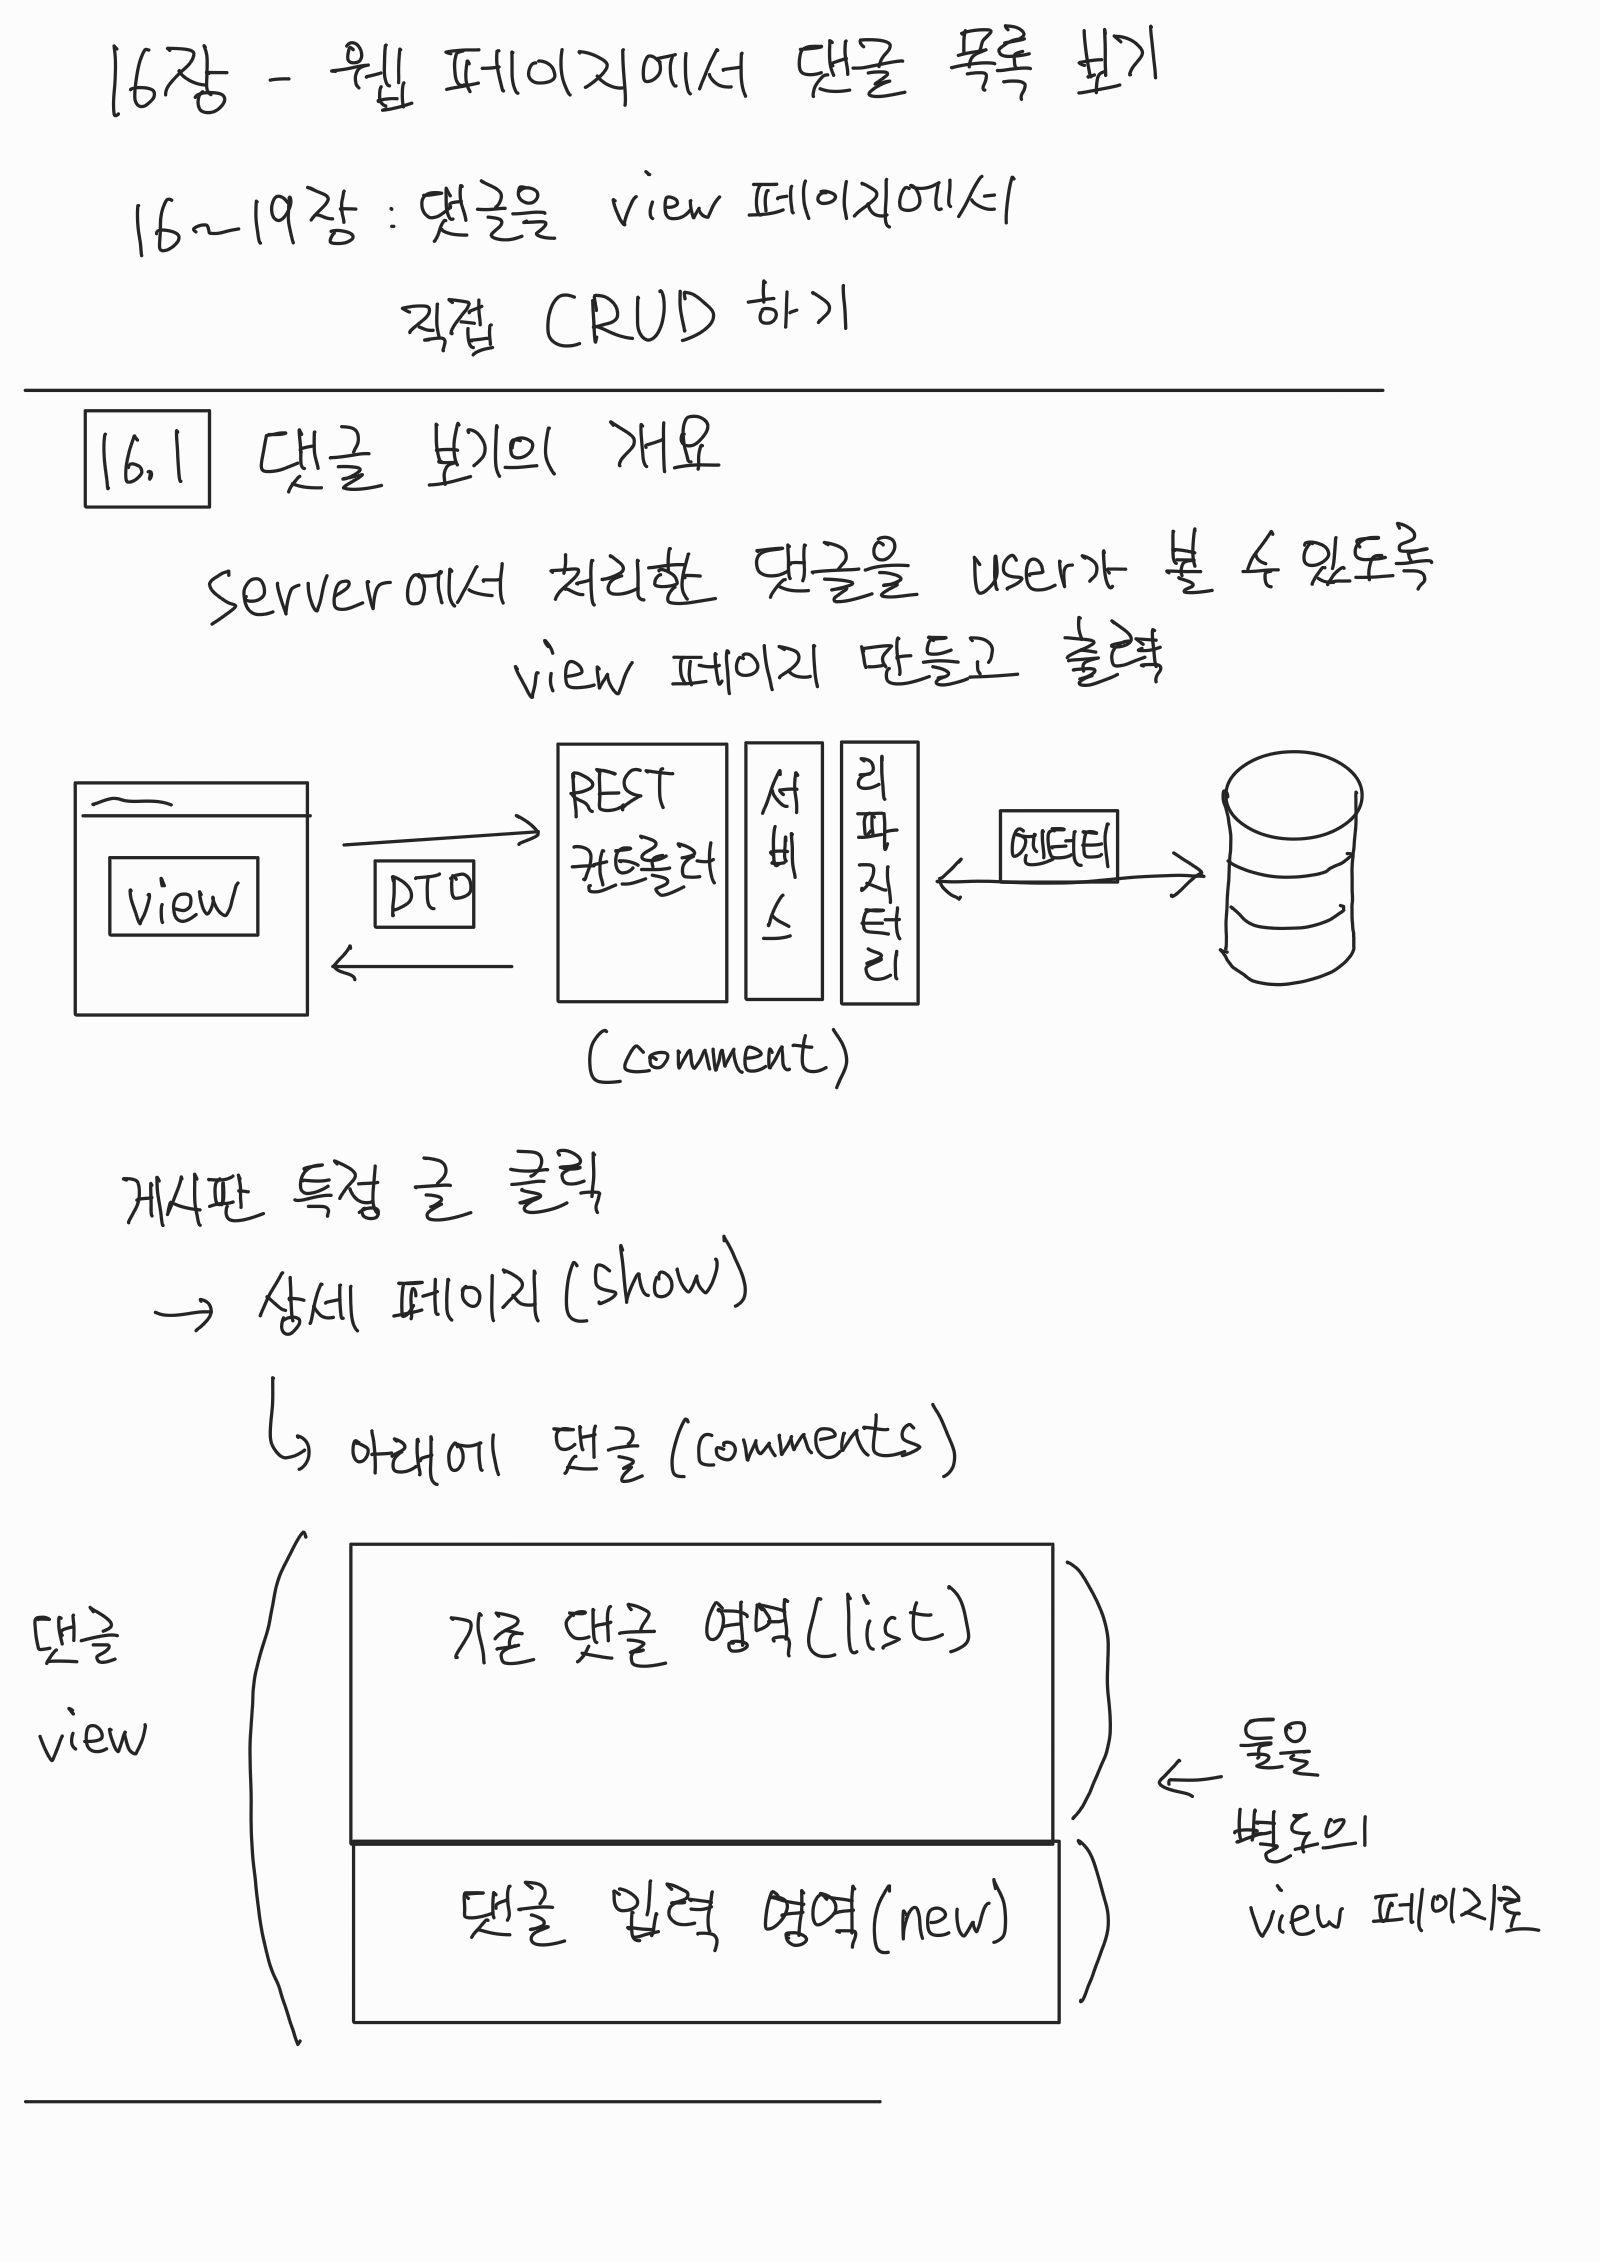 16장 - 웹 페이지에서 댓글 목록 보기
16~19장 : 댓글을 view 페이지에서
직접 CRUD 하기
16.1 댓글 보기의 개요
server에서 처리한 댓글을 user가 볼 수 있도록
view 페이지 만들고 출력
view
DTO
REST
컨트롤러
서비스
리파지터리
엔티티
(comment)
게시판 특정 글 클릭
→ 상세 페이지 (show)
아래에 댓글 (comments)
댓글
view
기존 댓글 영역 (list)
댓글 입력 영역 (new)
← 둘을
별도의
view 페이지로